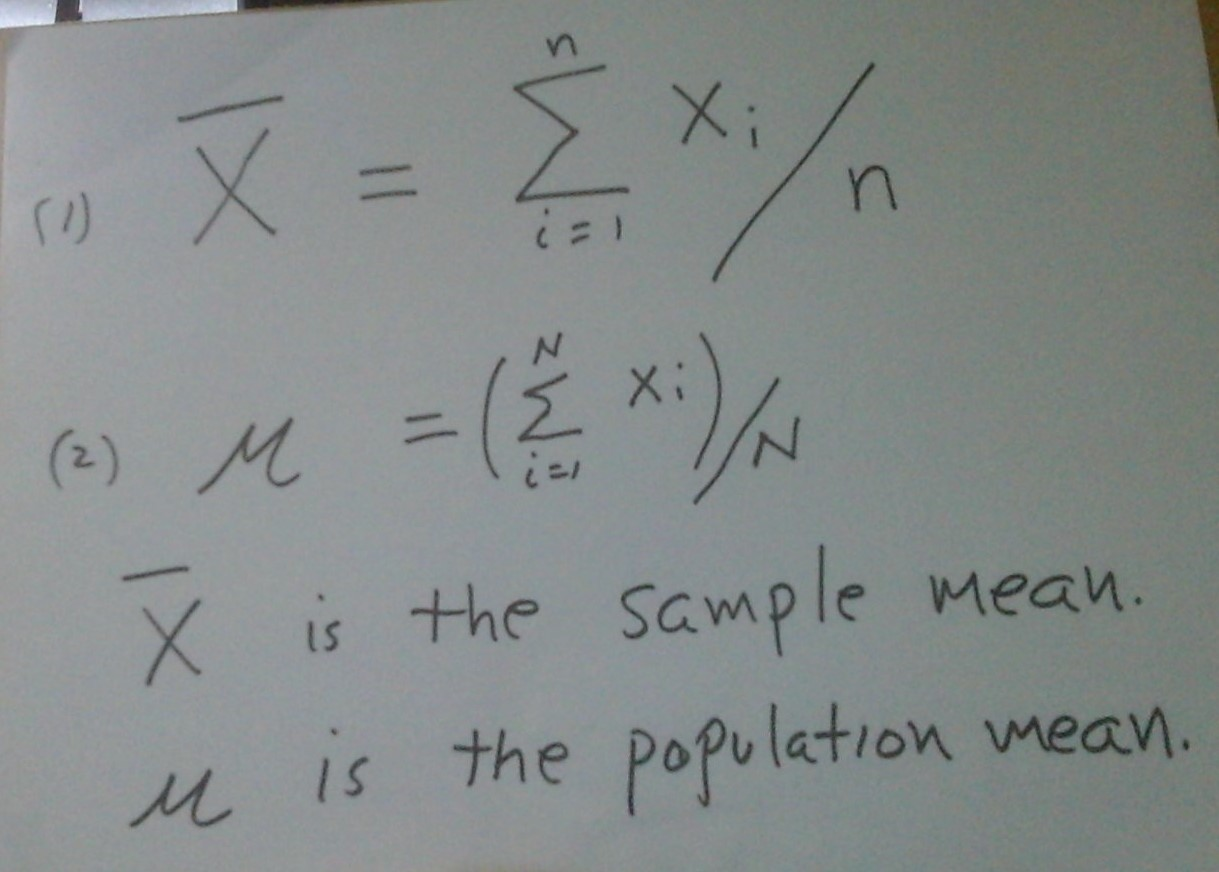 (1) X̅ = ∑_{i=1}^{n} x_i / n
(2) μ = (∑_{i=1}^{N} x_i) / N
X̅ is the sample mean.
μ is the population mean.